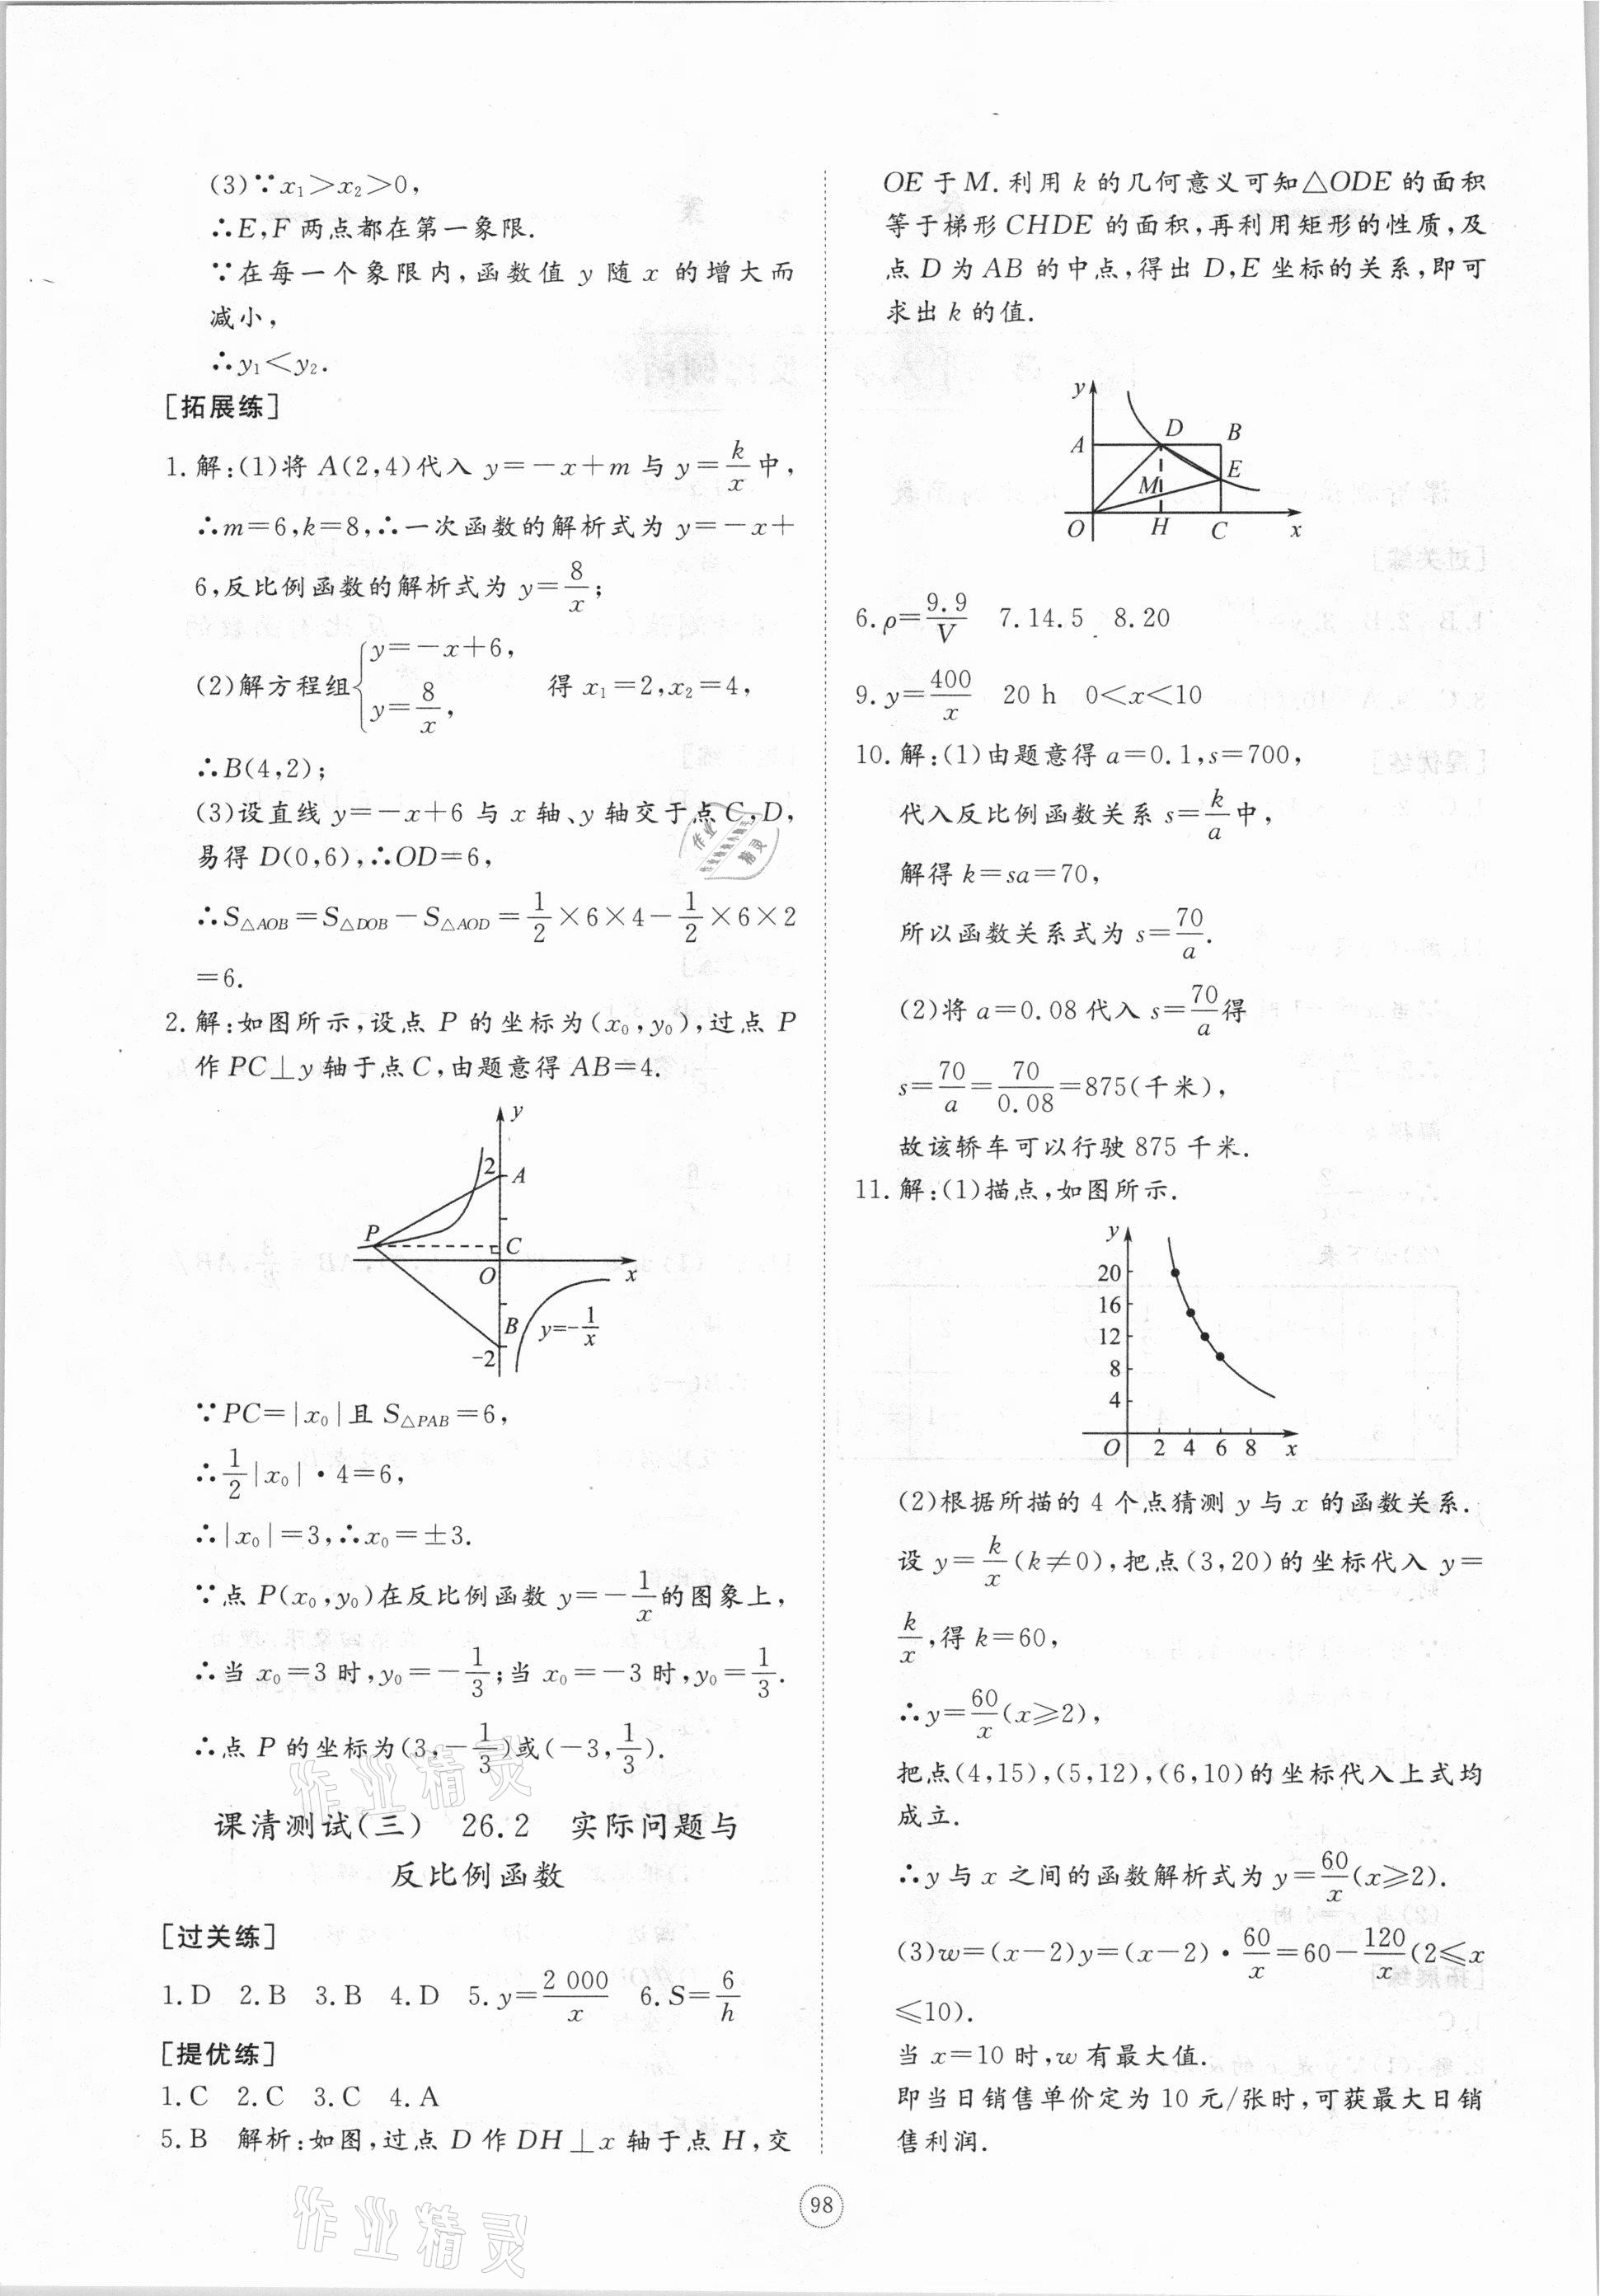 (3)∵x₁>x₂>0,
∴E,F 两点都在第一象限.
∵在每一个象限内,函数值 y 随 x 的增大而
减小,
∴y₁<y₂.
[拓展练]
1. 解:(1)将 A(2,4)代入 y=-x+m 与 y=k/x 中,
∴m=6,k=8,∴一次函数的解析式为 y=-x+
6,反比例函数的解析式为 y=8/x;
(2)解方程组{y=-x+6, y=8/x, 得 x₁=2,x₂=4,
∴B(4,2);
(3)设直线 y=-x+6 与 x 轴、y 轴交于点 C,D,
易得 D(0,6),∴OD=6,
∴S△AOB=S△DOB-S△AOD=1/2×6×4-1/2×6×2
=6.
2. 解:如图所示,设点 P 的坐标为(x₀,y₀),过点 P
作 PC⊥y 轴于点 C,由题意得 AB=4.
y
2
A
P
C
O
x
B
y=-1/x
-2
∵PC=|x₀|且 S△PAB=6,
∴1/2|x₀|·4=6,
∴|x₀|=3,∴x₀=±3.
∵点 P(x₀,y₀)在反比例函数 y=-1/x的图象上,
∴当 x₀=3 时,y₀=-1/3;当 x₀=-3 时,y₀=1/3.
∴点 P 的坐标为(3,-1/3)或(-3,1/3).
课清测试(三) 26.2 实际问题与
反比例函数
[过关练]
1. D 2. B 3. B 4. D 5. y=2 000/x 6. S=6/h
[提优练]
1. C 2. C 3. C 4. A
5. B 解析:如图,过点 D 作 DH⊥x 轴于点 H,交
OE 于 M. 利用 k 的几何意义可知△ODE 的面积
等于梯形 CHDE 的面积,再利用矩形的性质,及
点 D 为 AB 的中点,得出 D,E 坐标的关系,即可
求出 k 的值.
y
D B
A
E
M
O H C x
6. ρ=9.9/V 7. 14.5 8. 20
9. y=400/x 20 h 0<x<10
10. 解:(1)由题意得 a=0.1,s=700,
代入反比例函数关系 s=k/a中,
解得 k=sa=70,
所以函数关系式为 s=70/a.
(2)将 a=0.08 代入 s=70/a得
s=70/a=70/0.08=875(千米),
故该轿车可以行驶 875 千米.
11. 解:(1)描点,如图所示.
y
20
16
12
8
4
O 2 4 6 8 x
(2)根据所描的 4 个点猜测 y 与 x 的函数关系.
设 y=k/x(k≠0),把点(3,20)的坐标代入 y=
k/x,得 k=60,
∴y=60/x(x⩾2),
把点(4,15),(5,12),(6,10)的坐标代入上式均
成立.
∴y 与 x 之间的函数解析式为 y=60/x(x⩾2).
(3)w=(x-2)y=(x-2)·60/x=60-120/x(2⩽x
⩽10).
当 x=10 时,w 有最大值.
即当日销售单价定为 10 元/张时,可获最大日销
售利润.
98
作业精灵
作业精灵
作业精灵